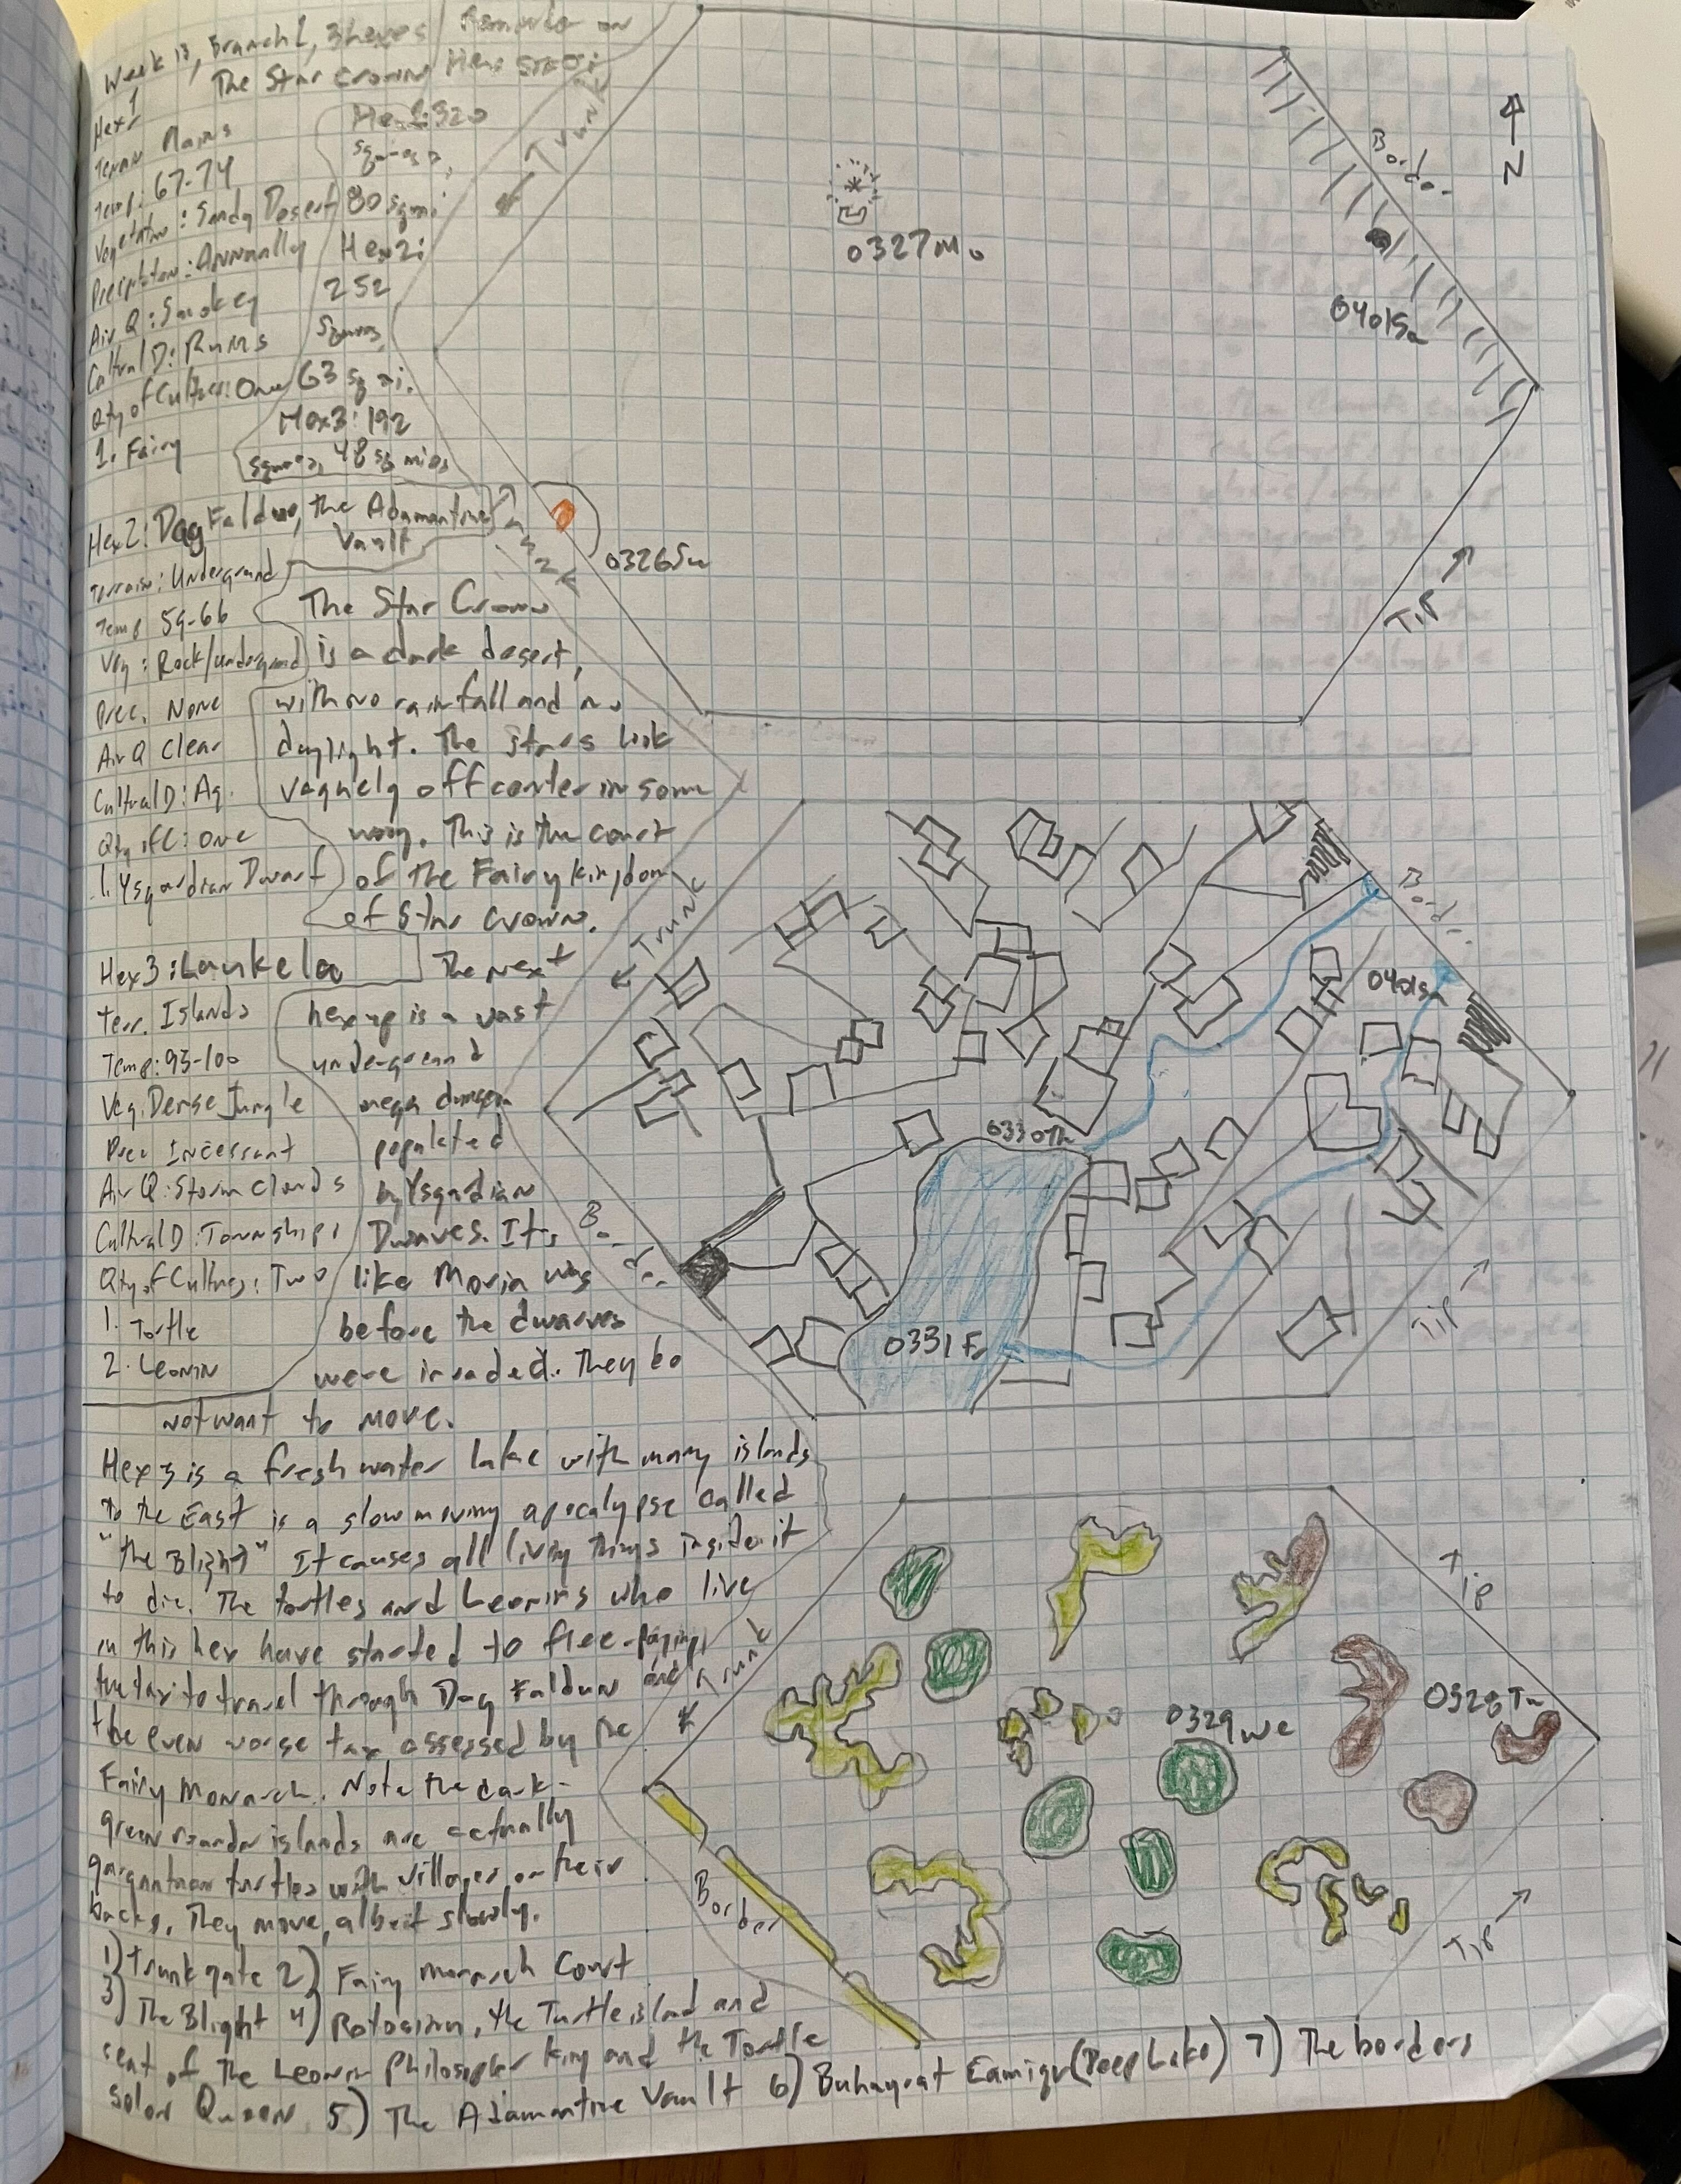 Week 13, Branch 1, 3 hexes
Hex 1
The Star Crown
Terrain Plains
Temp: 67-74
Vegetation: Sandy Desert
Precipitation: Annually
Air Q: Smokey
Cultural D: Ruins
Qty of Cultures: One
1. Fairy
Hex 1: 320
squares,
80 sq mi
Hex 2:
252
squares,
63 sq mi.
Hex 3: 192
squares, 48 sq miles
Hex 2: Dag Faldun, the Adamantine
Vault
Terrain: Underground
Temp 59-66
Veg: Rock/underground
Prec. None
Air Q Clear
Cultural D: Ag.
Qty of C: One
1. Ysgardian Dwarf
Hex 3: Laukeloa
Terr. Islands
Temp: 93-100
Veg. Dense Jungle
Prec Incessant
Air Q: Storm Clouds
Cultural D: Townships
Qty of Cultures: Two
1. Tortle
2. Leonin
The Star Crown
is a dark desert,
with no rainfall and no
daylight. The stars look
vaguely off center in some
way. This is the court
of the Fairy kingdom
of Star Crown.
The next
hex up is a vast
underground
mega dungeon
populated
by Ysgardian
Dwarves. It's
like Moria was
before the dwarves
were invaded. They do
not want to move.
Hex 3 is a fresh water lake with many islands
to the East is a slow moving apocalypse called
"the Blight" It causes all living things inside it
to die. The tortles and Leonins who live
in this hex have started to flee - paying
the tax to travel through Dag Faldun and
the even worse tax assessed by the
Fairy Monarch. Note the dark-
green rounder islands are actually
gargantuan turtles with villages on their
backs. They move, albeit slowly.
1) Trunk gate 2) Fairy Monarch Court
3) The Blight 4) the Turtle island and
seat of The Leonin Philosopher King and the Tortle
Solar Queen 5) The Adamantine Vault 6) Buhayrat Eamiqa (Deep Lake) 7) The borders
Trunk
0327Mo
Border
N
0401Sa
0326Su
Tip
Trunk
Border
0401Sa
0330Th
Border
0331Fr
Tip
Trunk
Tip
0328Tu
0329We
Border
Tip